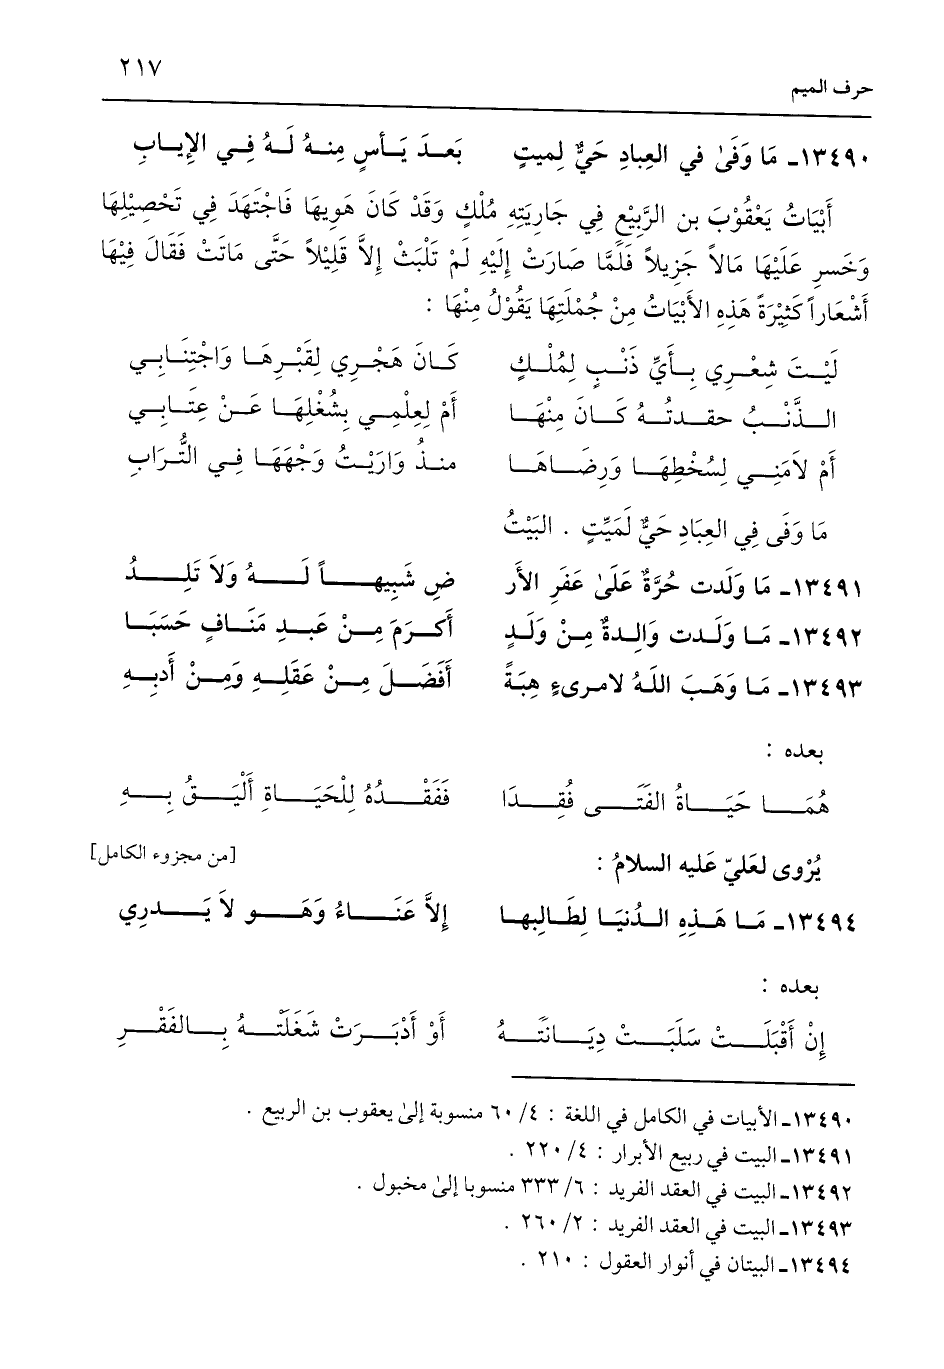 ٢١٧
حرف الميم
١٣٤٩٠ـ مَا وَفَىٰ في العِبادِ حَيٌّ لميتٍ بَعدَ يَأسٍ مِنهُ لَهُ فِي الإِيابِ
أَبْيَاتُ يَعْقُوْبَ بن الرَّبِيْعِ فِي جَارِيَتِهِ مُلْكٍ وَقَدْ كَانَ هَوِيهَا فَاجْتَهَدَ فِي تَحْصِيْلِهَا
وَخَسر عَلَيْهَا مَالاً جَزِيلاً فَلَمَّا صَارَتْ إِلَيْهِ لَمْ تَلْبَثْ إِلاَّ قَلِيْلاً حَتَّى مَاتَتْ فَقَالَ فِيْهَا
أَشْعَاراً كَثِيْرَةً هَذِهِ الأَبْيَاتُ مِنْ جُمْلَتِهَا يَقُوْلُ مِنْهَا :
لَيْتَ شِعْرِي بِأَيِّ ذَنْبٍ لِمُلْكٍ كَانَ هَجْرِي لِقَبْرِهَا وَاجْتِنَابِي
الذَّنْبُ حقدتُهُ كَانَ مِنْهَا أَمْ لِعِلْمِي بِشُغْلِهَا عَنْ عِتَابِي
أَمْ لأَمَنِي لِسُخْطِهَا وَرِضَاهَا منذُ وَارَيْتُ وَجْهَهَا فِي التُّرَابِ
مَا وَفَى فِي العِبَادِ حَيٌّ لَمَيِّتٍ . البَيْتُ
١٣٤٩١ـ مَا وَلَدت حُرَّةٌ عَلَىٰ عَفَرِ الأَر ضِ شَبِيهاً لَهُ وَلاَ تَلِدُ
١٣٤٩٢ـ مَا وَلَدت وَالِدةٌ مِنْ وَلَدٍ أَكرَمَ مِنْ عَبدِ مَنَافٍ حَسَبَا
١٣٤٩٣ـ مَا وَهَبَ اللَهُ لامرىءٍ هِبَةً أَفَضَلَ مِنْ عَقَلِهِ وَمِنْ أَدبِهِ
بعده :
هُمَا حَيَاةُ الفَتَى فُقِدَا فَفَقْدُهُ لِلْحَيَاةِ أَلْيَقُ بِهِ
يُرْوى لعَليّ عَليه السلامُ : [من مجزوء الكامل]
١٣٤٩٤ـ مَا هَذِهِ الدُنيَا لِطَالِبِها إِلاَّ عَنَاءُ وَهَو لاَ يَدرِي
بعده :
إِنْ أَقْبَلَتْ سَلَبَتْ دِيَانَتَهُ أَوْ أَدْبَرَتْ شَغَلَتْهُ بِالفَقْرِ
١٣٤٩٠ـ الأبيات في الكامل في اللغة : ٤/ ٦٠ منسوبة إلىٰ يعقوب بن الربيع .
١٣٤٩١ـ البيت في ربيع الأبرار : ٤/ ٢٢٠ .
١٣٤٩٢ـ البيت في العقد الفريد : ٦/ ٣٣٣ منسوبا إلىٰ مخبول .
١٣٤٩٣ـ البيت في العقد الفريد : ٢/ ٢٦٠ .
١٣٤٩٤ـ البيتان في أنوار العقول : ٢١٠ .